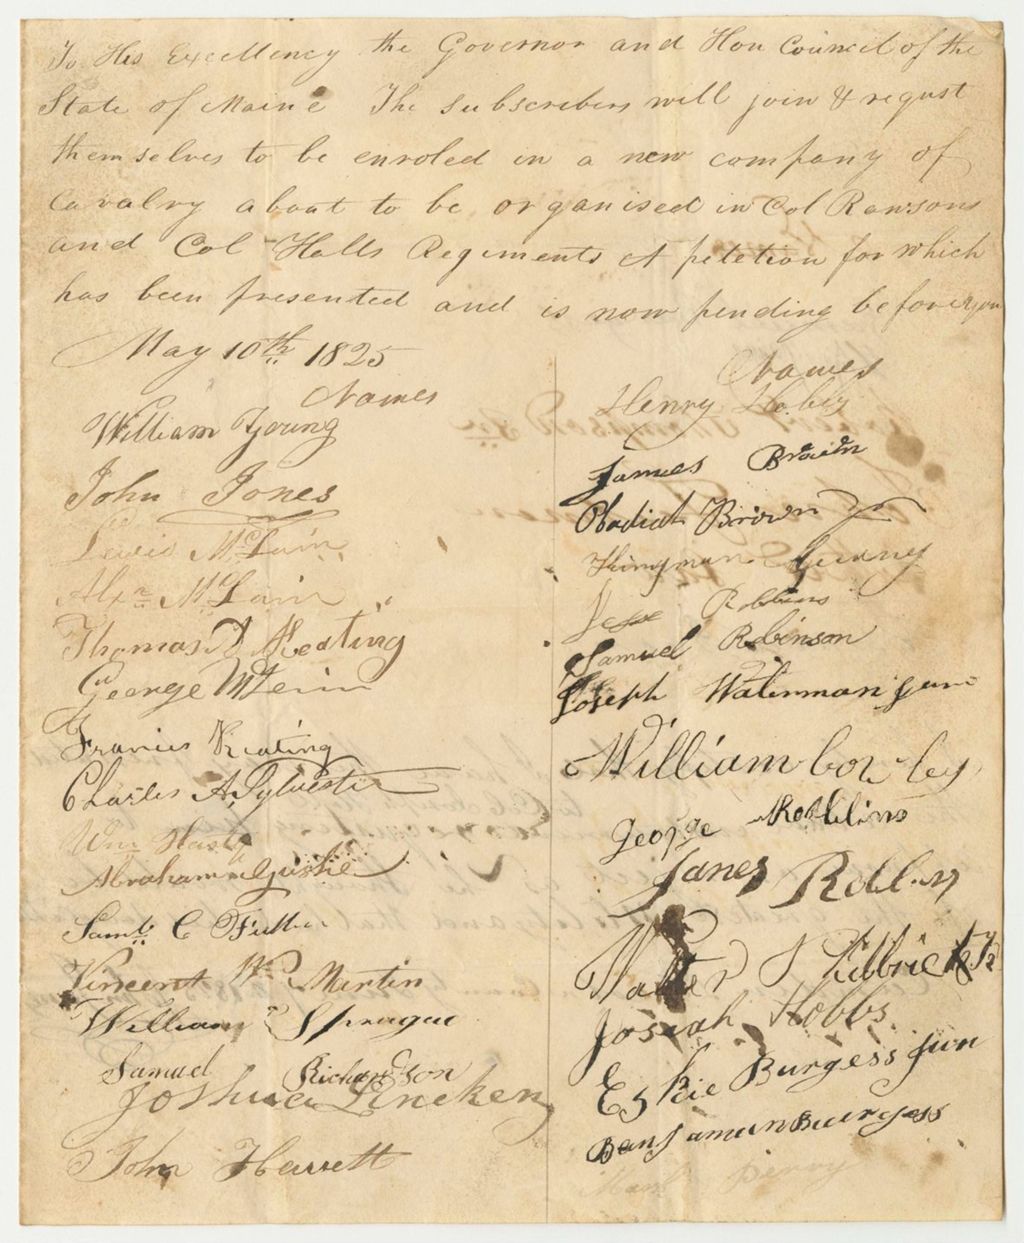 To His Excellency the Governor and Hon Council of the
State of Maine The subscribers will join & requst
themselves to be enroled in a new company of
Cavalry about to be organised in Col Ransons
and Col Halls Regiments A petetion for which
has been presented and is now pending before you
May 10th 1825
Names
William Young
John Jones
Lewis McLain
Alxr McLain
Thomas D Keating
George McLain
Francis Keating
Charles A Sylvester
Wm
Abraham
Saml C Fuller
Vincent Wm Martin
William Sprague
Samuel Richardson
Joshua Lincken
John Hewett
Names
Henry
James Brown
Obadiah Brown Jr
Kingman
Jesse Robbins
Samuel Robinson
Joseph Waterman Junr
William Cowley
George Robbins
James
Walter S
Josiah Hobbs
Eskie Burgess jun
Benjamun Burgess
Perry